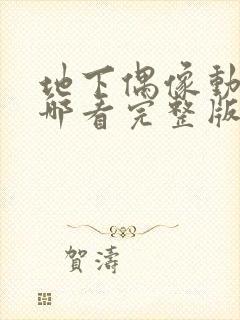 地下偶像動
哪看完整版
賀濤